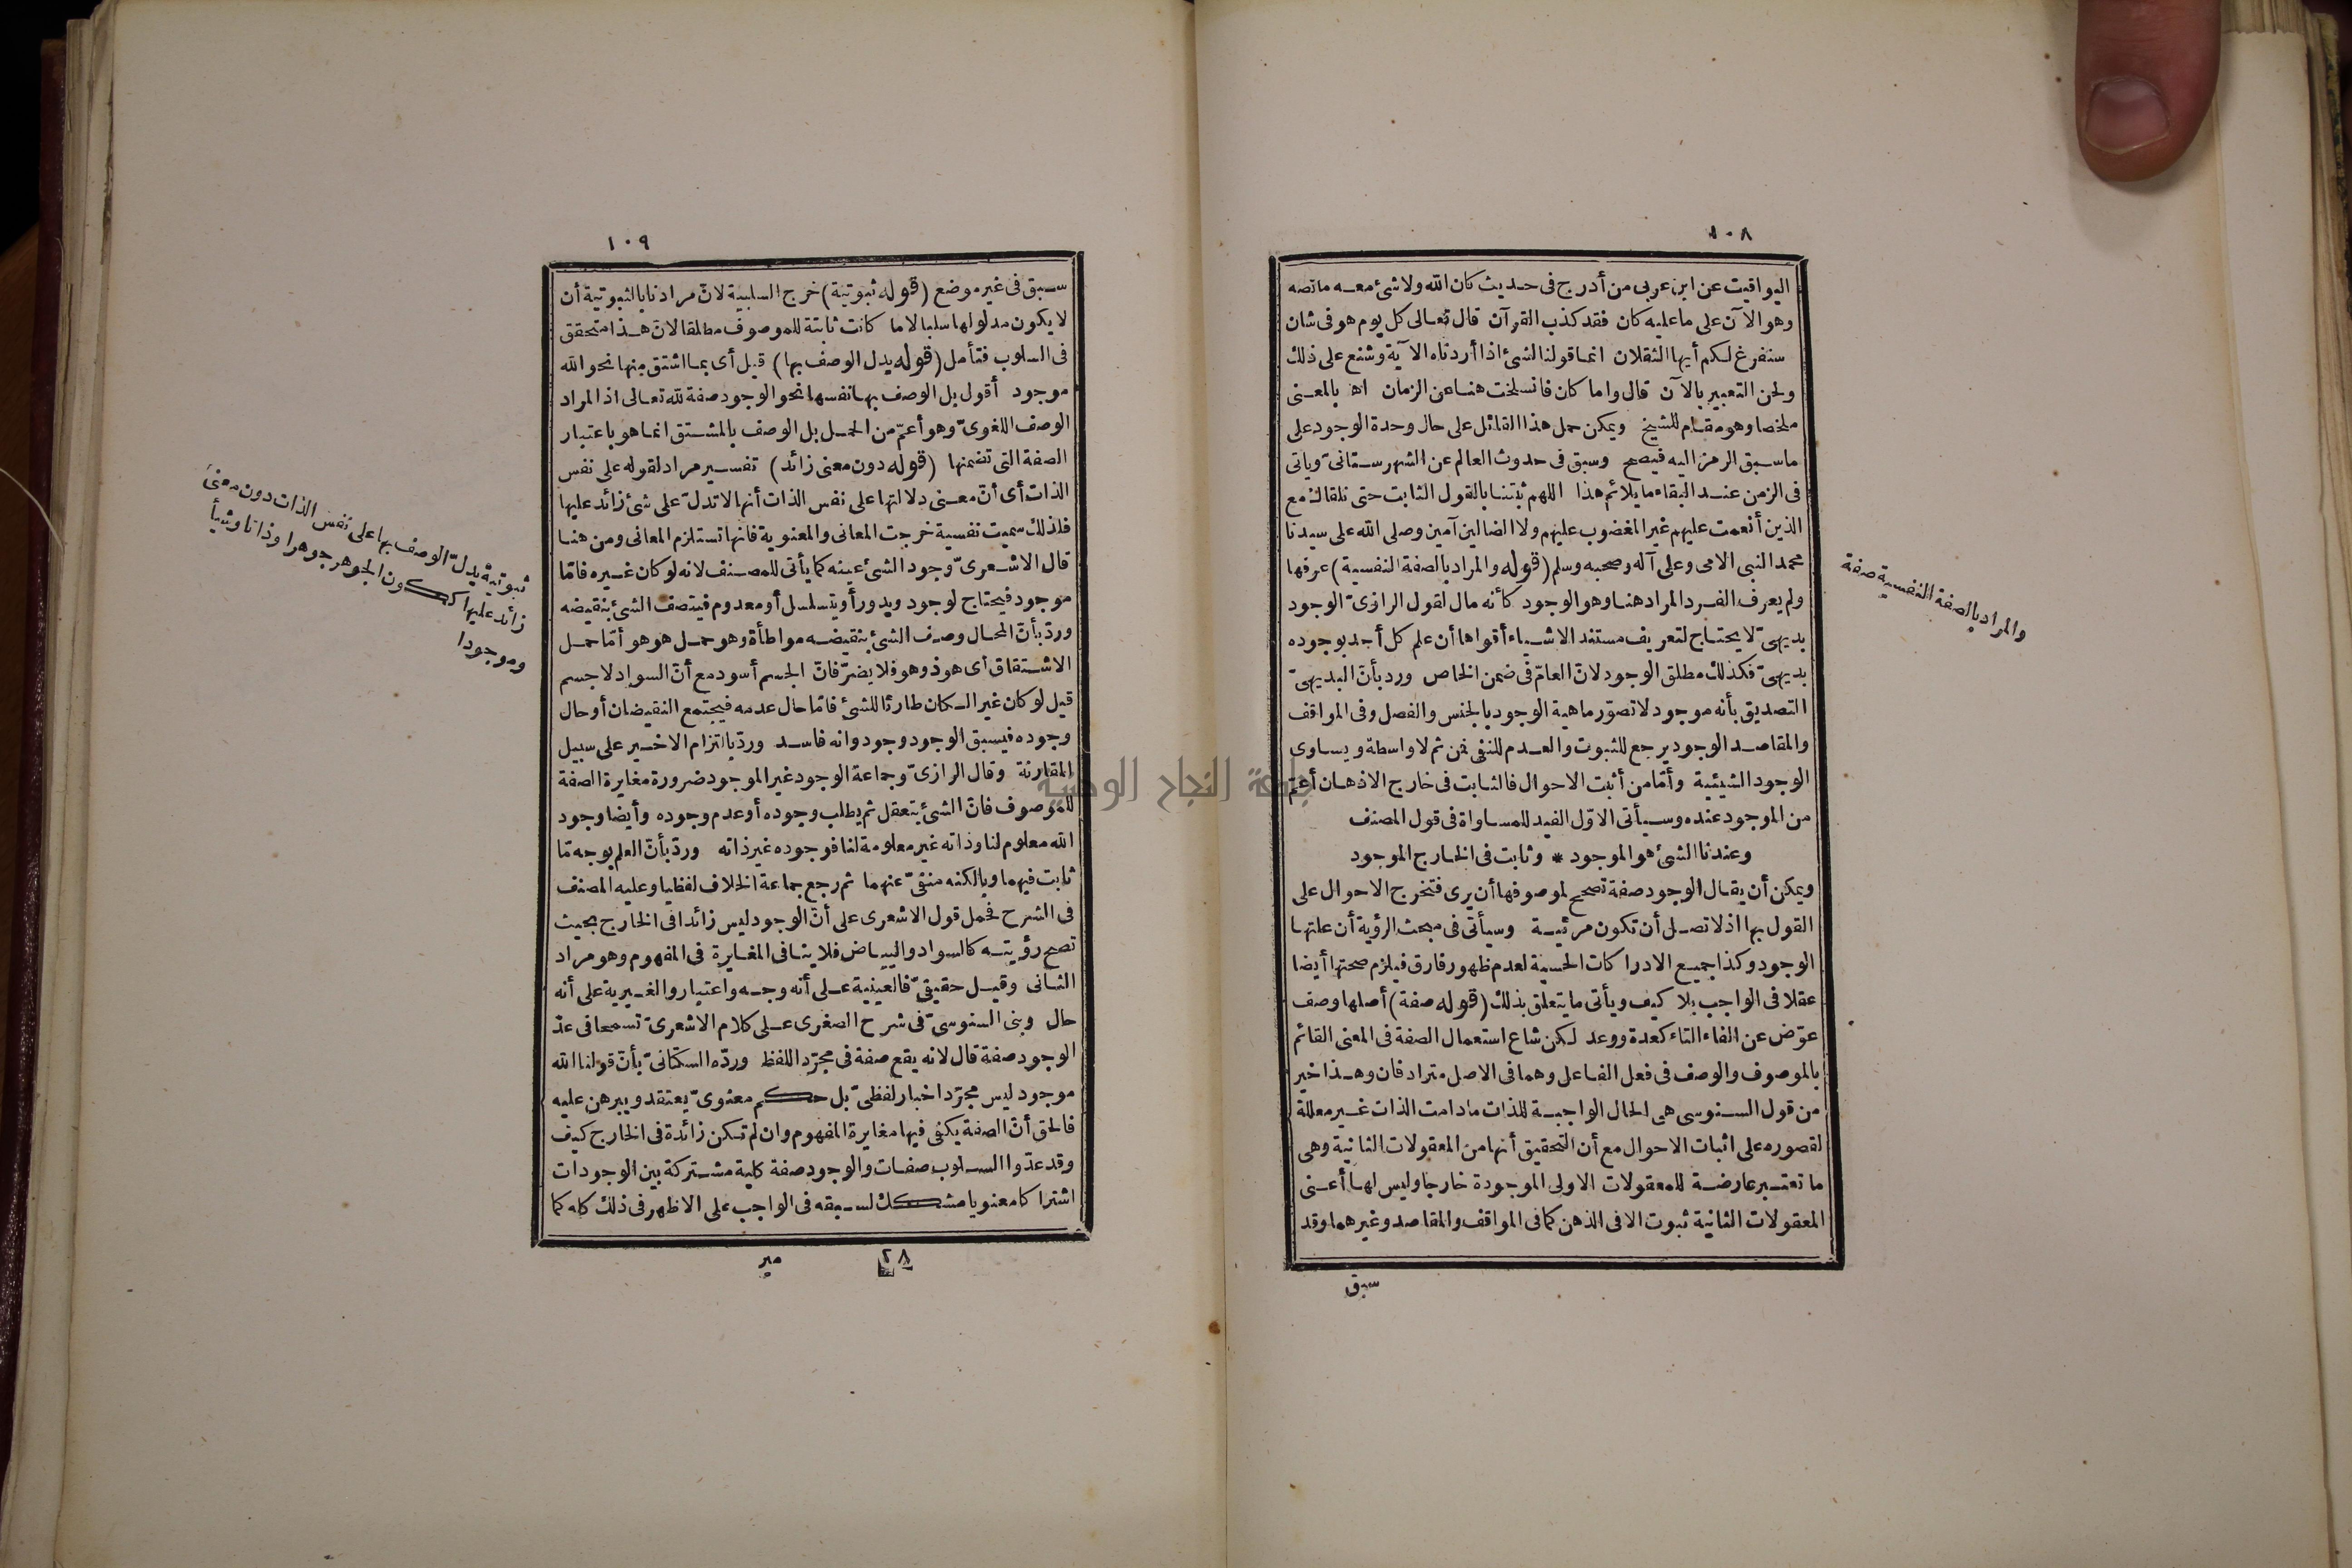 ١٠٨
اليواقيت عن ابن عربى من أدرج فى حديث كان الله ولا شئ معه مانصه
وهو الآن على ما عليه كان فقد كذب القرآن قال تعالى كل يوم هو فى شان
سنفرغ لكم أيها الثقلان انما قولنا لشئ اذا أردناه الآية وشنع على ذلك
ولحن التعبير بالآن قال واما كان فانسلخت هنا عن الزمان اه بالمعنى
ملخصا وهو مقام للشيخ ويمكن حمل هذا القائل على حال وحدة الوجود على
ما سبق الرمز اليه فيصح وسبق فى حدوث العالم عن الشهرستانىّ ويأتى
فى الزمن عند البقاء ما يلائم هذا اللهم ثبتنا بالقول الثابت حتى نلقاك مع
الذين أنعمت عليهم غير المغضوب عليهم ولا الضالين آمين وصلى الله على سيدنا
محمد النبى الامى وعلى آله وصحبه وسلم (قوله والمراد بالصفة النفسية) عرفها
ولم يعرف الفرد المراد هنا وهو الوجود كأنه مال لقول الرازىّ الوجود
بديهىّ لا يحتاج لتعريف مستند الاشياء أقواها أن علم كل أحد بوجوده
بديهىّ فكذلك مطلق الوجود لانّ العامّ فى ضمن الخاص ورد بأنّ البديهىّ
التصديق بأنه موجود لا تصوّر ماهية الوجود بالجنس والفصل وفى المواقف
والمقاصد الوجود يرجع للثبوت والعدم للنفى فمن ثم لا واسطة ويساوى
الوجود الشيئية وأمّا من أثبت الاحوال فالثابت فى خارج الاذهان أعمّ
من الموجود عنده وسيأتى الاوّل المفيد للمساواة فى قول المصنف
وعندنا الشئ هو الموجود * وثابت فى الخارج الموجود
ويمكن أن يقال الوجود صفة تصحح لموصوفها أن يرى فتخرج الاحوال على
القول بها اذ لا تصل أن تكون مرئية وسيأتى فى مبحث الرؤية أن علتها
الوجود وكذا جميع الادراكات الحسية لعدم ظهور فارق فيلزم صحتها أيضا
عقلا فى الواجب بلا كيف ويأتى ما يتعلق بذلك (قوله صفة) أصلها وصف
عوّض عن الفاء التاء كعدة ووعد لكن شاع استعمال الصفة فى المعنى القائم
بالموصوف والوصف فى فعل الفاعل وهما فى الاصل مترادفان وهذا خير
من قول السنوسى هى الحال الواجبة للذات مادامت الذات غير معللة
لقصوره على اثبات الاحوال مع أن التحقيق أنها من المعقولات الثانية وهى
ما تعتبر عارضة للمعقولات الاولى الموجودة خارجا وليس لها أعنى
المعقولات الثانية ثبوت الا فى الذهن كما فى المواقف والمقاصد وغيرهما وقد
سبق
والمراد بالصفة النفسية صفة
١٠٩
سبق فى غير موضع (قوله ثبوتية) خرج السلبية لانّ مرادنا بالثبوتية أن
لا يكون مدلولها سلبا لا ما كانت ثابتة للموصوف مطلقا لانّ هذا متحقق
فى السلوب فتأمل (قوله يدل الوصف بها) قيل أى بما اشتق منها نحو الله
موجود أقول بل الوصف بها نفسها نحو الوجود صفة لله تعالى اذ المراد
الوصف اللغوىّ وهو أعمّ من الحمل بل الوصف بالمشتق انما هو باعتبار
الصفة التى تضمنها (قوله دون معنى زائد) تفسير مراد لقوله على نفس
الذات أى أنّ معنى دلالتها على نفس الذات أنها لا تدلّ على شئ زائد عليها
فلذلك سميت نفسية خرجت المعانى والمعنوية فانها تستلزم المعانى ومن هنا
قال الاشعرىّ وجود الشئ عينه كما يأتى للمصنف لانه لو كان غيره فامّا
موجود فيحتاج لوجود ويدور أو يتسلسل أو معدوم فيتصف الشئ بنقيضه
وردّ بأنّ المحال وصف الشئ بنقيضه مواطأة وهو حمل هو هو أمّا حمل
الاشتقاق أى هو ذو هو فلا يضرّ فانّ الجسم أسود مع أنّ السواد لا جسم
قيل لو كان غير الكان طارئا للشئ فامّا حال عدمه فيجتمع النقيضان أو حال
وجوده فيسبق الوجود وجود وانه فاسد وردّ بالتزام الاخير على سبيل
المقارنة وقال الرازىّ وجماعة الوجود غير الموجود ضرورة مغايرة الصفة
للموصوف فانّ الشئ يتعقل ثم يطلب وجوده أو عدم وجوده وأيضا وجود
الله معلوم لنا وذاته غير معلومة لنا فوجوده غير ذاته وردّ بأنّ العلم بوجه مّا
ثابت فيهما وبالكنه منفىّ عنهما ثم رجع جماعة الخلاف لفظيا وعليه المصنف
فى الشرح فحمل قول الاشعرى على أنّ الوجود ليس زائدا فى الخارج بحيث
تصح رؤيته كالسواد والبياض فلا ينافى المغايرة فى المفهوم وهو مراد
الثانى وقيل حقيقىّ فالعينية على أنه وجه واعتبار والغيرية على أنه
حال وبنى السنوسىّ فى شرح الصغرى على كلام الاشعرىّ تسمحا فى عدّ
الوجود صفة قال لانه يقع صفة فى مجرّد اللفظ وردّه السكتانىّ بأنّ قولنا الله
موجود ليس مجرّد اخبار لفظىّ بل حكم معنوىّ يعتقد ويبرهن عليه
فالحق أنّ الصفة يكفى فيها مغايرة المفهوم وان لم تكن زائدة فى الخارج كيف
وقد عدّوا السلوب صفات والوجود صفة كلية مشتركة بين الوجودات
اشتراكا معنويا مشكك لسبقه فى الواجب على الاظهر فى ذلك كله كما
٢٨
مير
ثبوتية يدلّ الوصف بها على نفس الذات دون معنى
زائد عليها ككون الجوهر جوهرا وذاتا وشيأ
وموجودا
جامعة النجاح الوطنية